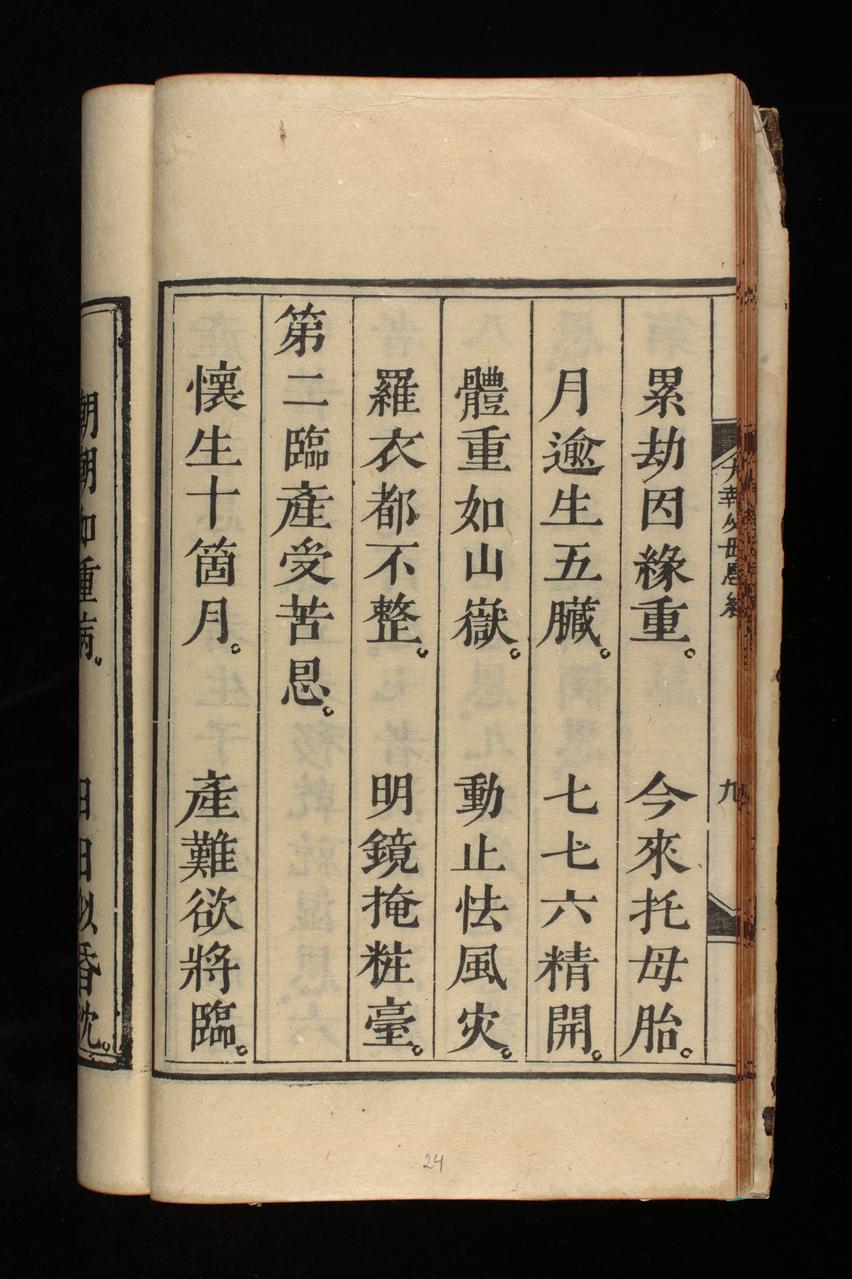 大報父母恩經 九
累劫因緣重。 今來托母胎。
月逾生五臟。 七七六精開。
體重如山嶽。 動止怯風災。
羅衣都不整。 明鏡掩粧臺。
第二臨產受苦恩。
懷生十箇月。 產難欲將臨。
朝朝如重病。 日日似昏沈。
24